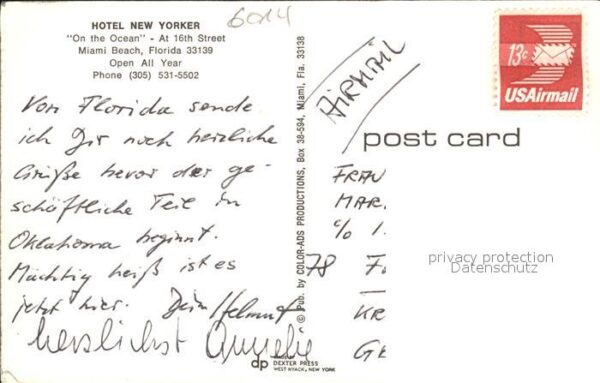 HOTEL NEW YORKER
"On the Ocean" - At 16th Street
Miami Beach, Florida 33139
Open All Year
Phone (305) 531-5502
6014
Von Florida sende
ich Dir noch herzliche
Grüße bevor der ge-
schäftliche Teil in
Oklahoma beginnt.
Mächtig heiß ist es
jetzt hier. Dein Helmut
herzlichst Annelie
© Pub. by COLOR-ADS PRODUCTIONS, Box 38-594, Miami, Fla. 33138
dp
DEXTER PRESS
WEST NYACK, NEW YORK
AIRMAIL
13c
USAirmail
post card
FRAU
MAR
c/o
78 F
KR
GE
privacy protection
Datenschutz